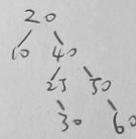 20
10 40
25 50
30 60